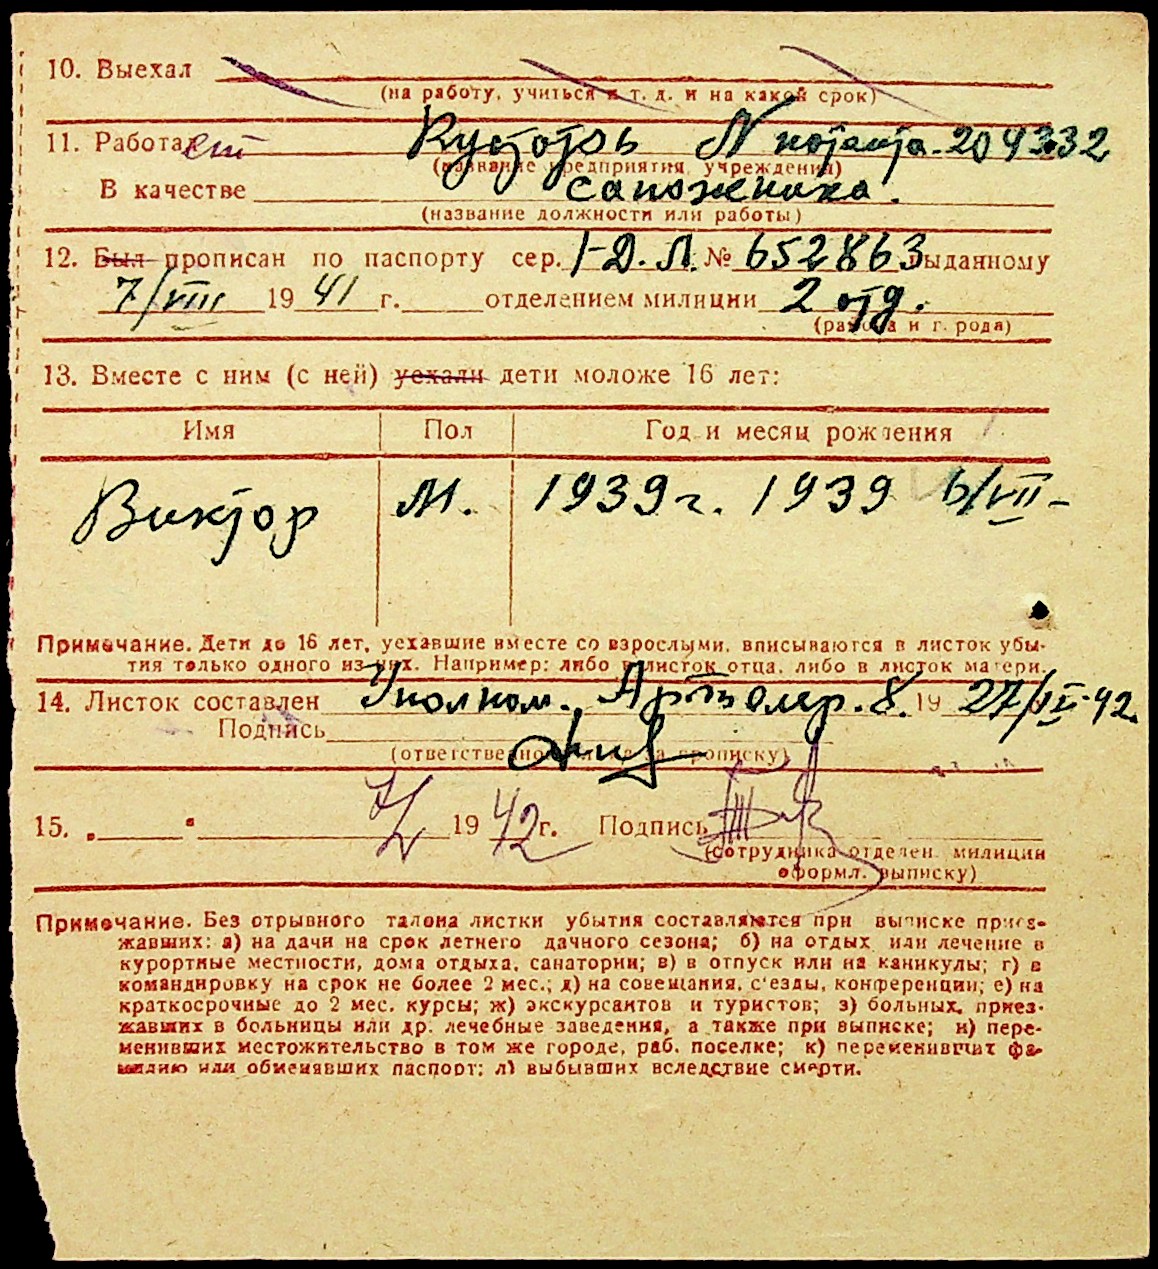 10. Выехал
(на работу, учиться и т. д. и на какой срок)
11. Работает Кустотрь N патента 204332
(название предприятия, учреждения)
В качестве сапожника.
(название должности или работы)
12. Был прописан по паспорту сер. I-Д.Л. № 652863 выданному
7/VIII 1941 г. отделением милиции 2 отд.
(района и г. рода)
13. Вместе с ним (с ней) уехали дети моложе 16 лет:
Имя Пол Год и месяц рождения
Виктор М. 1939 г. 1939 6/VII-
Примечание. Дети до 16 лет, уехавшие вместе со взрослыми, вписываются в листок убы-
тия только одного из них. Например: либо в листок отца, либо в листок матери.
14. Листок составлен Уполном. 8. 19 27/IV-42
Подпись
(ответственного лица за прописку)
15. „ " 7/V 1942 г. Подпись
(сотрудника отделен. милиции
оформл. выписку)
Примечание. Без отрывного талона листки убытия составляются при выписке приез-
жавших: а) на дачи на срок летнего дачного сезона; б) на отдых или лечение в
курортные местности, дома отдыха, санатории; в) в отпуск или на каникулы; г) в
командировку на срок не более 2 мес.; д) на совещания, с'езды, конференции; е) на
краткосрочные до 2 мес. курсы; ж) экскурсантов и туристов; з) больных, приез-
жавших в больницы или др. лечебные заведения, а также при выписке; и) пере-
менивших местожительство в том же городе, раб. поселке; к) переменивших фа-
милию или обменявших паспорт; л) выбывших вследствие смерти.